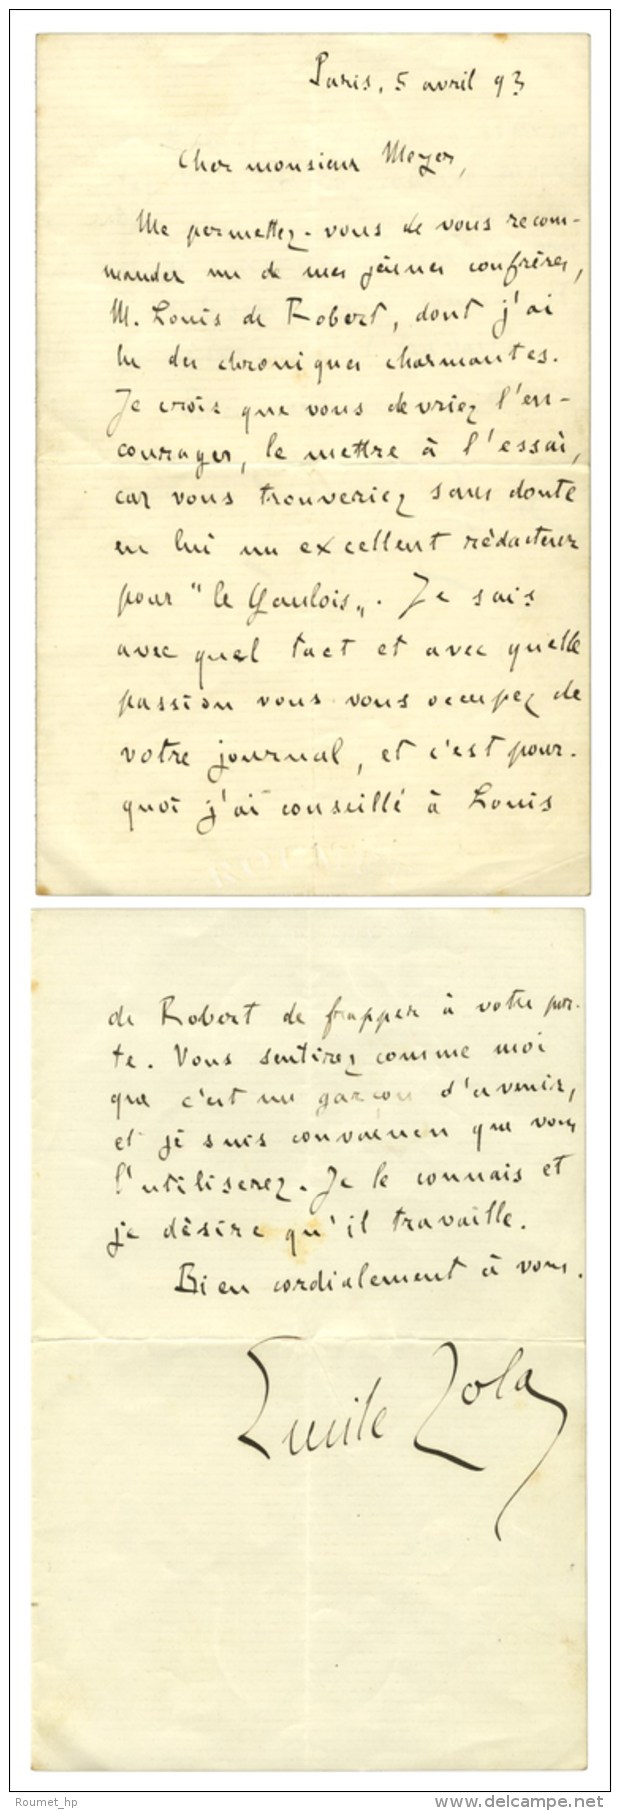 Paris, 5 avril 93
Cher monsieur Meyer,
Me permettez-vous de vous recom-
mander un de mes jeunes confrères,
M. Louis de Robert, dont j'ai
lu des chroniques charmantes.
Je crois que vous devriez l'en-
courager, le mettre à l'essai,
car vous trouveriez sans doute
en lui un excellent rédacteur
pour "le Gaulois". Je sais
avec quel tact et avec quelle
passion vous vous occupez de
votre journal, et c'est pour-
quoi j'ai conseillé à Louis
de Robert de frapper à votre por-
te. Vous sentirez comme moi
que c'est un garçon d'avenir,
et je suis convaincu que vous
l'utiliserez. Je le connais et
je désire qu'il travaille.
Bien cordialement à vous.
Emile Zola
Roumet_hp
www.delcampe.net